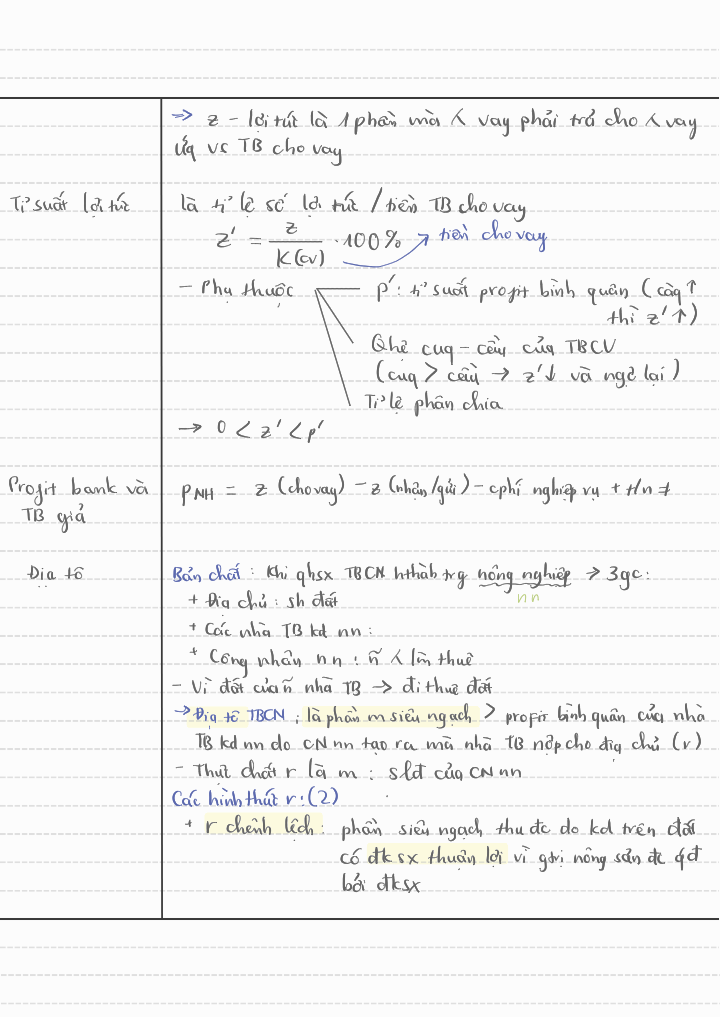 => z - lợi tức là 1 phần mà 人 vay phải trả cho 人 vay
ứq vs TB cho vay
Tỉ suất lợi tức
là tỉ lệ số lợi tức / tiền TB cho vay
z' = z / K(cv) . 100% → tiền cho vay
- Phụ thuộc
p': tỉ suất profit bình quân (càq ↑
thì z' ↑)
Qhệ cuq - cầu của TBCV
(cuq > cầu → z'↓ và ngc lại)
Tỉ lệ phân chia
→ 0 < z' < p'
Profit bank và
TB giả
PNH = z (cho vay) - z (nhận/gửi) - cphí nghiệp vụ + t/n ≠
Địa tô
Bản chất: Khi qhsx TBCN hthàh trg nông nghiệp → 3gc:
nn
+ Địa chủ: sh đất
+ Các nhà TB kd nn:
+ Công nhân nn: ñ 人 làm thuê
- Vì đất của ñ nhà TB → đi thuê đất
→ Địa tô TBCN: là phần m siêu ngạch > profit bình quân của nhà
TB kd nn do CN nn tạo ra mà nhà TB nộp cho địa chủ (r)
- Thực chất r là m: slđ của CN nn
Các hình thức r: (2)
+ r chênh lệch: phần siêu ngạch thu đc do kd trên đất
có đksx thuận lợi vì gtrị nông sản đc qđ
bởi đksx